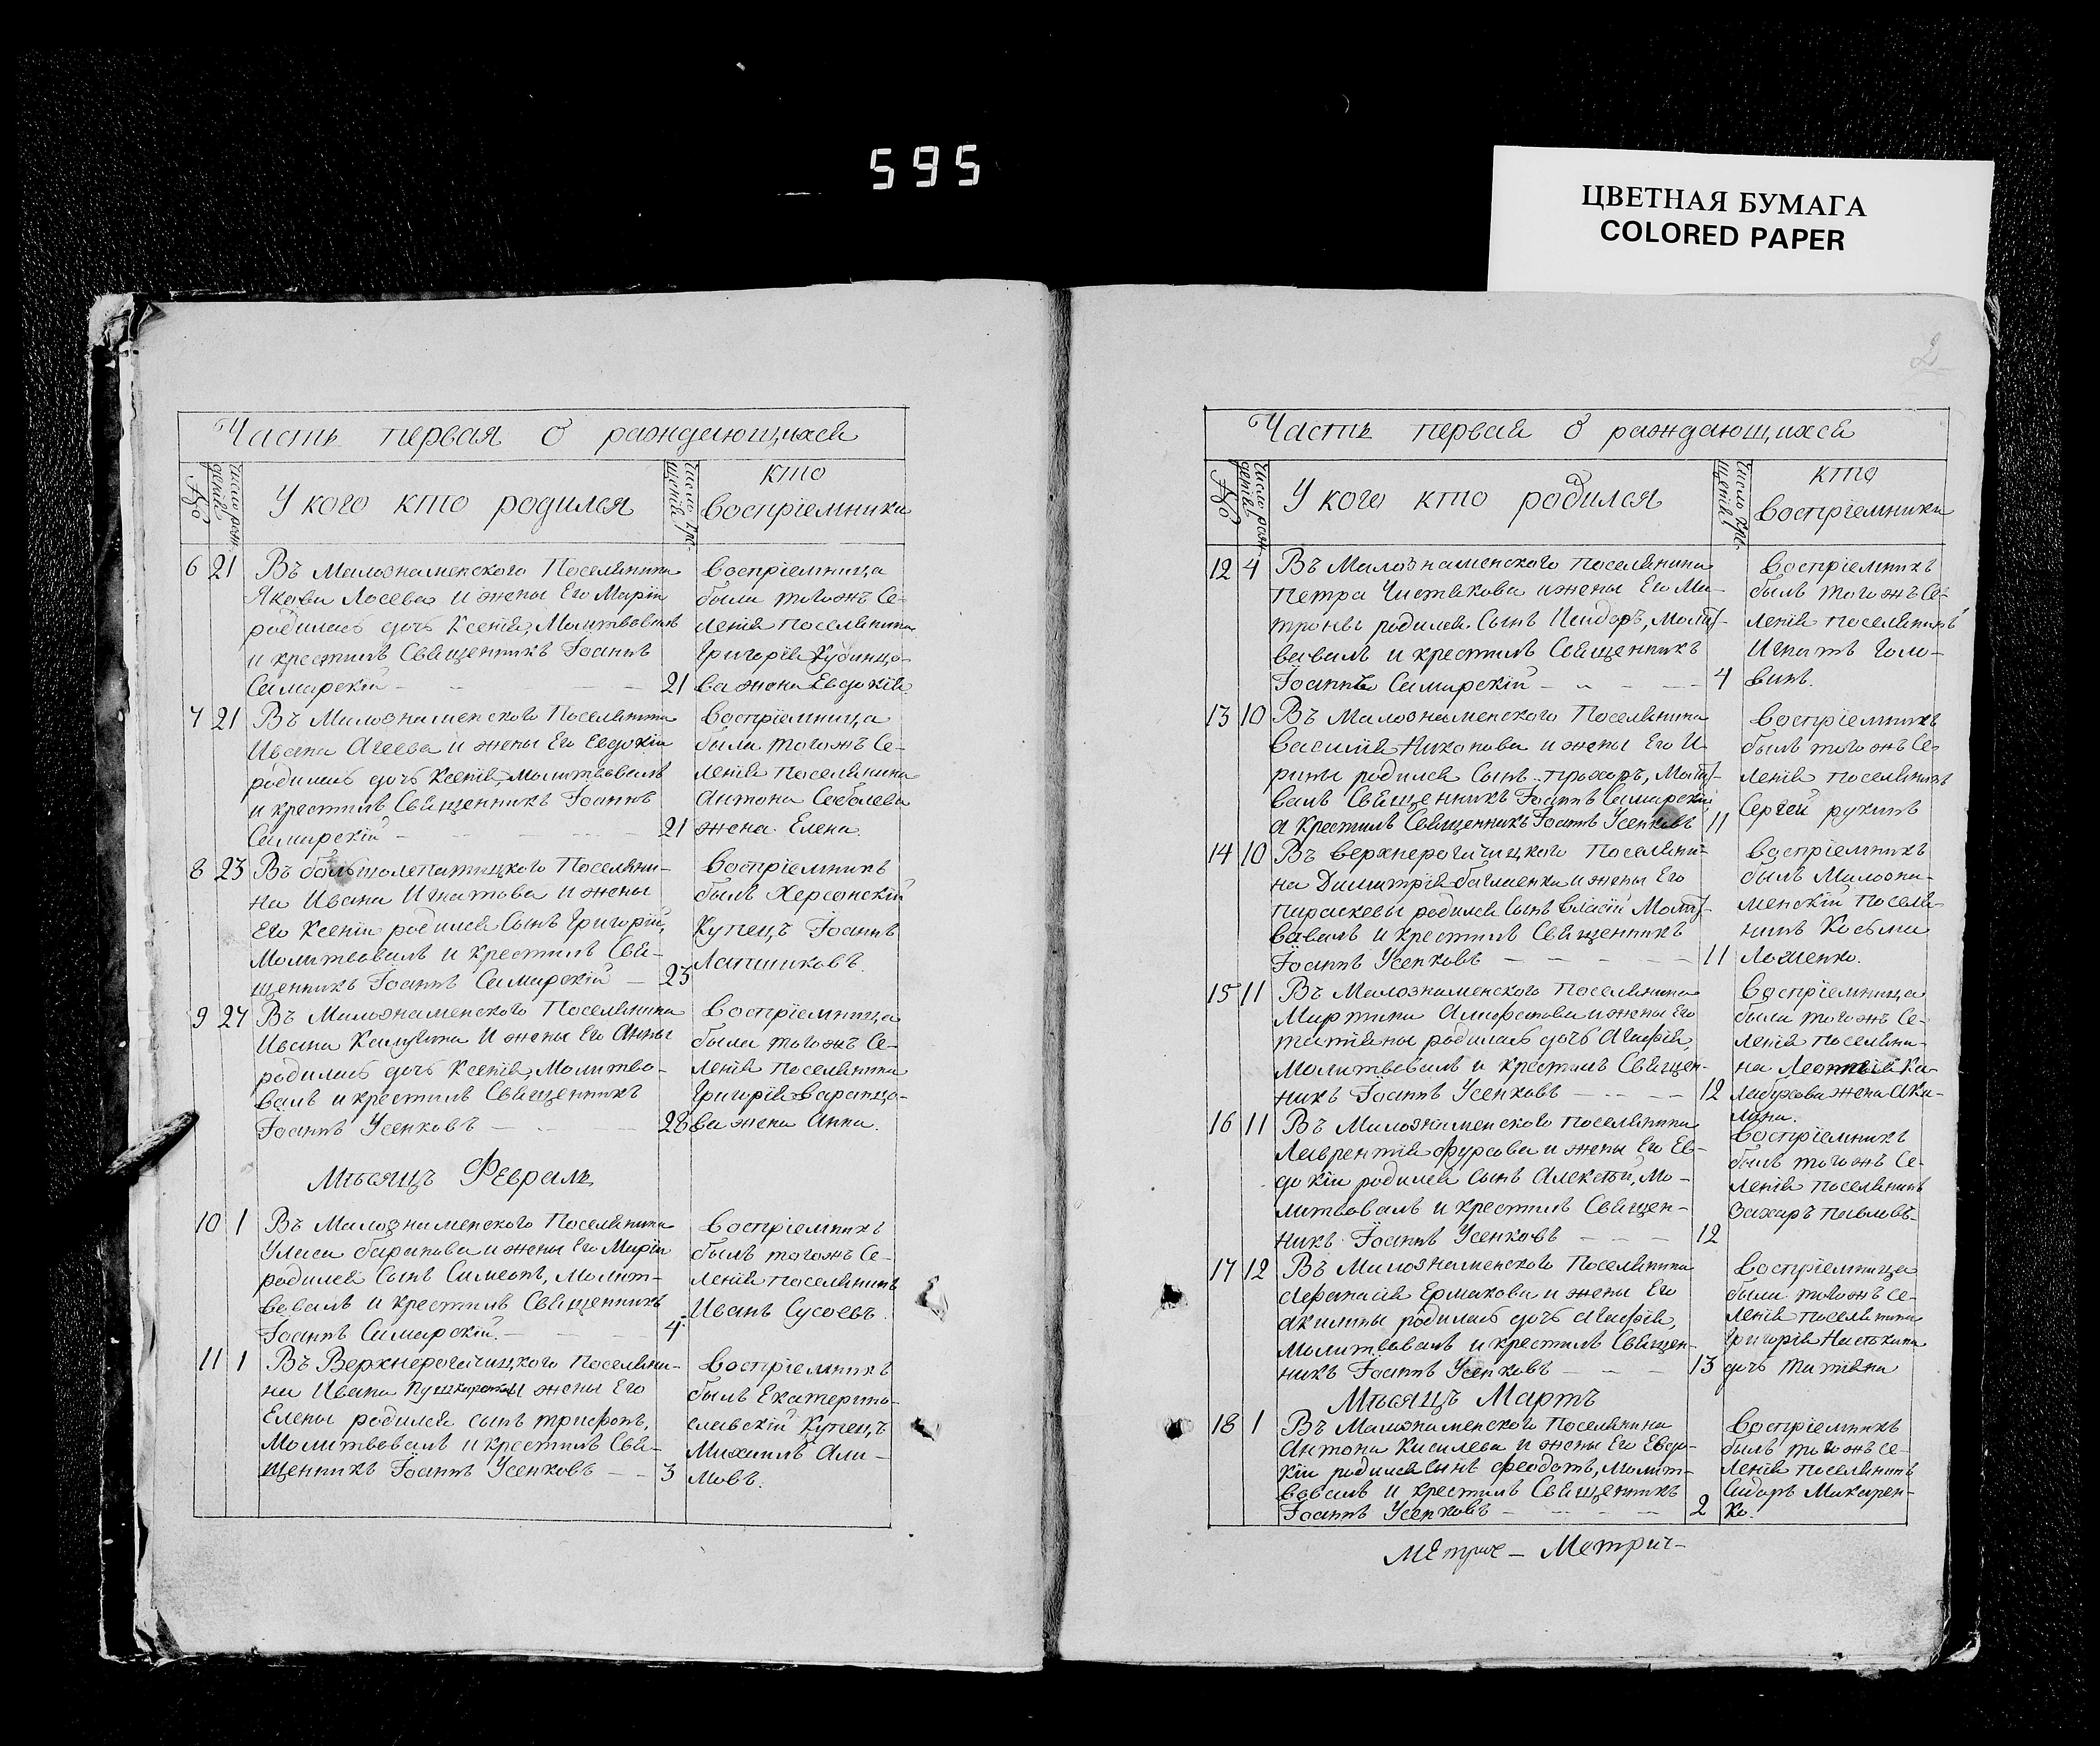 595
ЦВЕТНАЯ БУМАГА
COLORED PAPER
Часть первая о раждающихся
№
число рож-
деній
У кого кто родился
число кре-
щеній
кто
воспріемники
6 21 Въ Малознаменского Поселянина
Якова Лосева и жены Его Маріи
родилась дочь Ксенія, Молитвовалъ
и крестилъ Священникъ Іоаннъ
Самарскій 21
воспріемница
была тогожъ Се-
ленія поселянина
Григорія Кубинцо-
ва жена Евдокія
7 21 Въ Малознаменского Поселянина
Ивана Агеева и жены Его Евдокіи
родилась дочь Ксенія, молитвовалъ
и крестилъ Священникъ Іоаннъ
Самарскій 21
воспріемница
была тогожъ Се-
ленія Поселянина
Антона Соболева
жена Елена
8 23 Въ большолепатицкого Поселяни-
на Ивана Игнатова и жены
Его Ксеніи родился Сынъ Григорій,
Молитвовалъ и крестилъ Свя-
щенникъ Іоаннъ Самарскій 25
Воспріемникъ
былъ Херсонскій
Купецъ Іоаннъ
Лапшиковъ.
9 27 Въ Малознаменского Поселянина
Ивана Калугина и жены Его Анны
родилась дочь Ксенія, Молитво-
валъ и крестилъ Священникъ
Іоаннъ Усенковъ 28
Воспріемница
была тогожъ Се-
ленія поселянина
Григорія Варанцо-
ва жена Анна.
Мѣсяцъ Февраль
10 1 Въ Малознаменского Поселянина
Улиса баранова и жены Его Маріи
родился Сынъ Симеонъ, Молит-
вовалъ и крестилъ Священникъ
Іоаннъ Самарскій. 4
Воспріемникъ
былъ тогожъ Се-
ленія поселянинъ
Иванъ Сусоевъ.
11 1 Въ Верхнерогачицкого Поселяни-
на Ивана и жены Его
Елены родился сынъ трифонъ,
Молитвовалъ и крестилъ Свя-
щенникъ Іоаннъ Усенковъ 3
Воспріемникъ
былъ Екатерино-
славскій Купецъ
Михаилъ Али-
мовъ.
2
Часть первая о раждающихся
№
число рож-
деній
У кого кто родился
число кре-
щеній
кто
воспріемники
12 4 Въ Малознаменского поселянина
Петра Чистякова и жены Его Ма-
троны родился Сынъ Исидоръ, Молит-
вовалъ и крестилъ Священникъ
Іоаннъ Самарскій 4
Воспріемникъ
былъ тогожъ Се-
ленія поселянинъ
Игнатъ Голо-
винъ.
13 10 Въ Малознаменского Поселянина
Василія Никонова и жены Его И-
рины родился Сынъ прохоръ, Молит-
валъ Священникъ Іоаннъ Самарскій
а Крестилъ Священникъ Іоаннъ Усенковъ 11
Воспріемникъ
былъ тогожъ Се-
ленія поселянинъ
Сергей рукинъ
14 10 Въ верхнерогачицкого поселяни-
на Димитрія и жены Его
параскевы родился Сынъ Власій Молит-
вовалъ и крестилъ Священникъ
Іоаннъ Усенковъ 11
Воспріемникъ
былъ Малозна-
менскій посели-
нинъ Косьма
Лошенко.
15 11 Въ Малознаменского поселянина
Мартина и жены Его
татіяны родилась дочь Агафія,
Молитвовалъ и крестилъ Священ-
никъ Іоаннъ Усенковъ 12
Воспріемница
была тогожъ Се-
ленія поселяни-
на Леонтія Ка-
лабухова жена Аку-
лина.
16 11 Въ Малознаменского поселянина
Лаврентія Фурсова и жены Его Ев-
докіи родился Сынъ Алексѣй, Мо-
литвовалъ и крестилъ Священ-
никъ Іоаннъ Усенковъ 12
Воспріемникъ
былъ тогожъ Се-
ленія поселянинъ
Захаръ павловъ.
17 12 Въ Малознаменского Поселянина
Афанасія Ермакова и жены Его
Акилины родилась дочь Агафія,
Молитвовалъ и крестилъ Священ-
никъ Іоаннъ Усенковъ 13
Воспріемница
была тогожъ Се-
ленія поселянина
Григорія Насткина
дочь татіяна
Мѣсяцъ Мартъ
18 1 Въ Малознаменского Поселянина
Антона Киселева и жены Его Евдо-
кіи родился Сынъ Феодотъ, Молит-
вовалъ и крестилъ Священникъ
Іоаннъ Усенковъ 2
Воспріемникъ
былъ тогожъ се-
ленія поселянинъ
Сидоръ Макарен-
ко.
Метрич- Метрич-